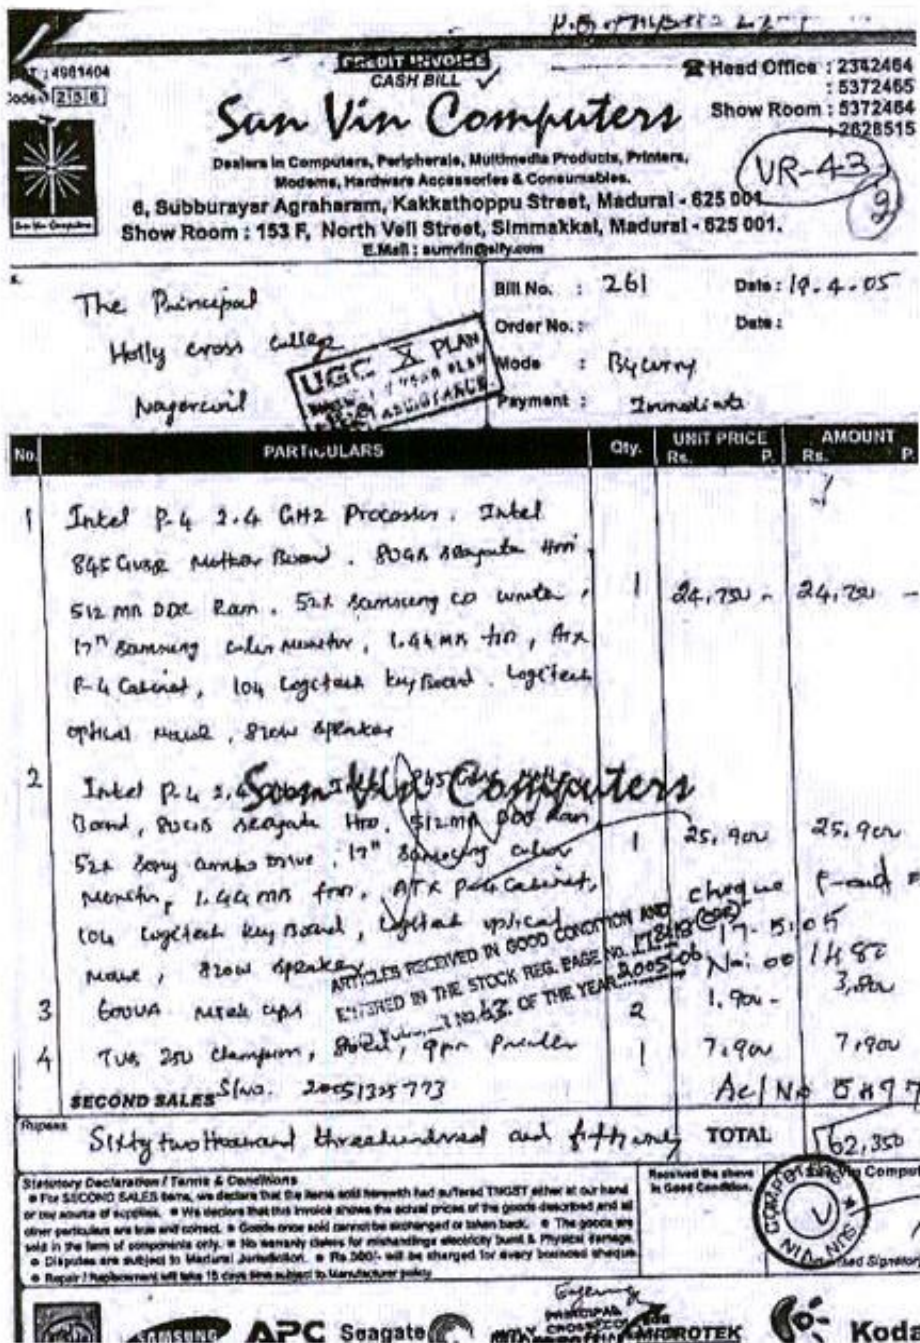 CREDIT INVOICE
CASH BILL ✓
: 4981404
Code : 256
Head Office : 2342464
: 5372465
Show Room : 5372464
2628515
Sun Vin Computers
Dealers in Computers, Peripherals, Multimedia Products, Printers,
Modems, Hardware Accessories & Consumables.
6, Subburayar Agraharam, Kakkathoppu Street, Madurai - 625 001
Show Room : 153 F, North Veli Street, Simmakkal, Madurai - 625 001.
E.Mail : sunvin@sify.com
VR-43
9
Sun Vin Computers
The Principal
Holly cross college
Nagercoil
UGC X PLAN
ASSISTANCE
Bill No. : 261 Date : 19.4.05
Order No. : Date :
Mode : By curry
Payment : Immediate
No. PARTICULARS Qty. UNIT PRICE Rs. P. AMOUNT Rs. P.
1 Intel P-4 2.4 GHz Processor, Intel
845 Mother Board, 80GB Seagate HDD,
512 MB DDR Ram, 52x Samsung CD writer, 1 24,750 - 24,750 -
17" Samsung color Monitor, 1.44 MB FDD, ATX
P-4 Cabinet, 104 Logitech Key Board, Logitech
optical Mouse, 820W Speaker
Sun Vin Computers
2 Intel P-4
Board, 80GB Seagate HDD, 512 MB DDR Ram
52x Sony combo Drive, 17" Samsung color 1 25,900 25,900
Monitor, 1.44 MB FDD, ATX P-4 Cabinet,
104 Logitech Key Board, Logitech optical
Mouse, 820W Speaker
cheque
17-5-05
No: 00 1480
ARTICLES RECEIVED IN GOOD CONDITION AND
ENTERED IN THE STOCK REG. PAGE NO.
No. 63 OF THE YEAR 2005-06
3 600VA ups 2 1,900 - 3,800
4 TVS 250 Champion, 80 col, 9pin Printer 1 7,900 7,900
S/No. 20051325773
SECOND SALES
Ac/No
Rupees Sixty two thousand three hundred and fifty only TOTAL 62,350
Statutory Declaration / Terms & Conditions
For SECOND SALES items, we declare that the items sold herewith had suffered TNGST either at our hand
or our source of supplies. We declare that this invoice shows the actual prices of the goods described and all
other particulars are true and correct. Goods once sold cannot be exchanged or taken back. The goods are
sold in the form of components only. No warranty claims for mishandlings electricity burnt & Physical damage.
Disputes are subject to Madurai Jurisdiction. Rs.300/- will be charged for every bounced cheque
Repair / Replacement will take 15 days time subject to Manufacturer policy
Received the above
in Good Condition.
Vin Comput
SUN VIN COMPUTERS
Signatory
SAMSUNG APC Seagate MICROTEK Koda
PRINCIPAL